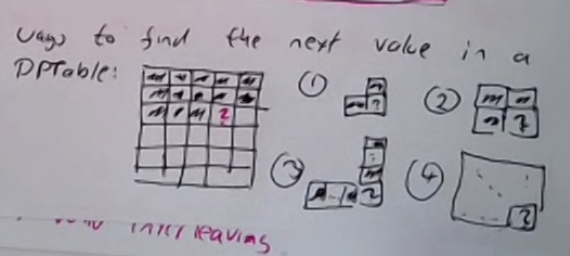 ways to find the next value in a
DPTable:
① ② ③ ④
? ? ? ? ?
interleaving